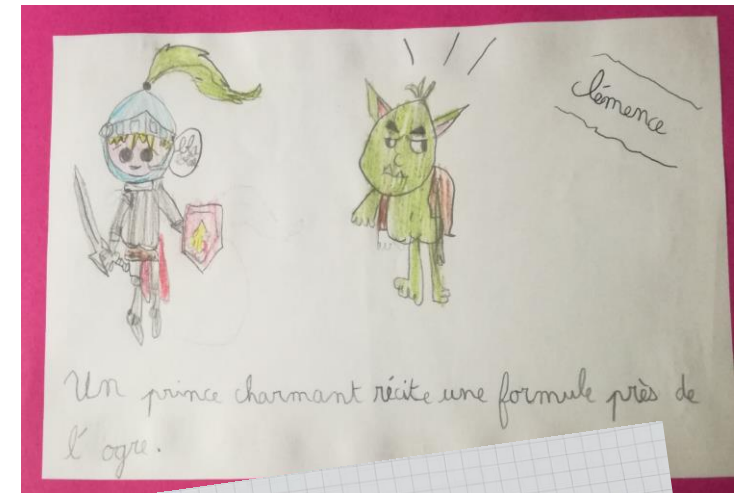 Clémence
Un prince charmant récite une formule près de
l'ogre.